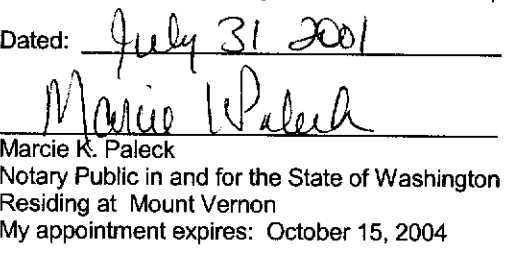 Dated: July 31 2001
Marcie K Paleck
Marcie K. Paleck
Notary Public in and for the State of Washington
Residing at Mount Vernon
My appointment expires: October 15, 2004